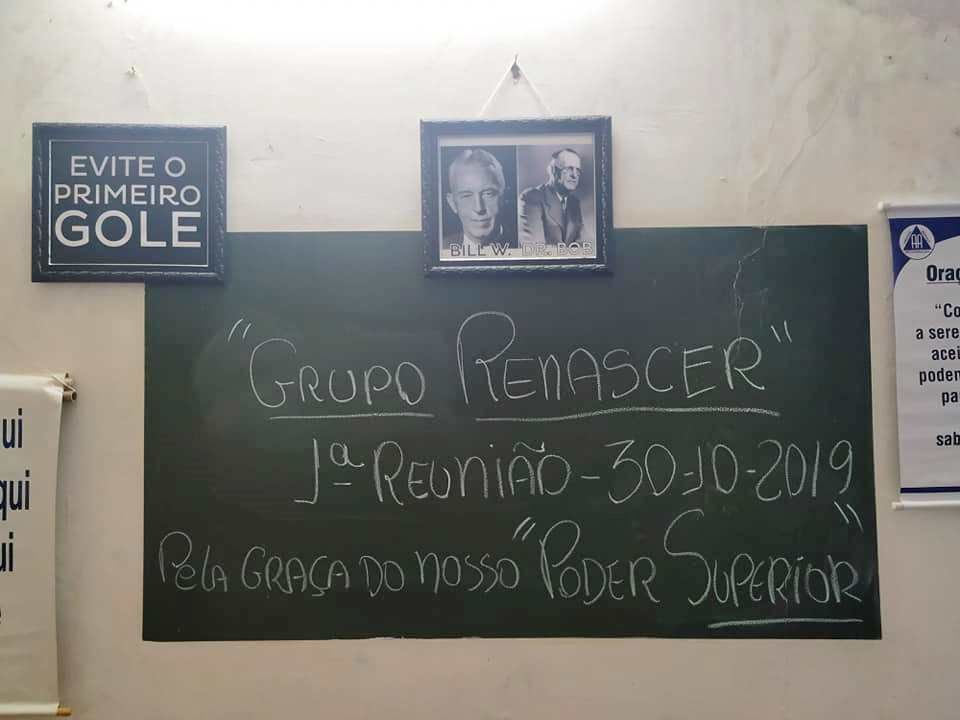 EVITE O
PRIMEIRO
GOLE
BILL W. DR. BOB
"GRUPO RENASCER"
1ª REUNIÃO - 30-10-2019
PELA GRAÇA DO NOSSO "PODER SUPERIOR"
ui
qui
ui
AA
Oraç
"Co
a sere
acei
podem
pa
sab